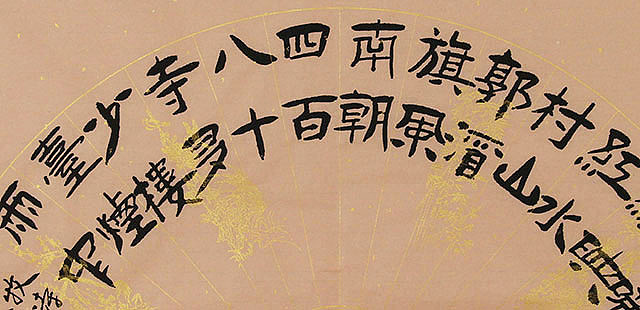 映
紅水
村山
郭酒
旗風
南朝
四百
八十
寺多
少樓
臺煙
雨中